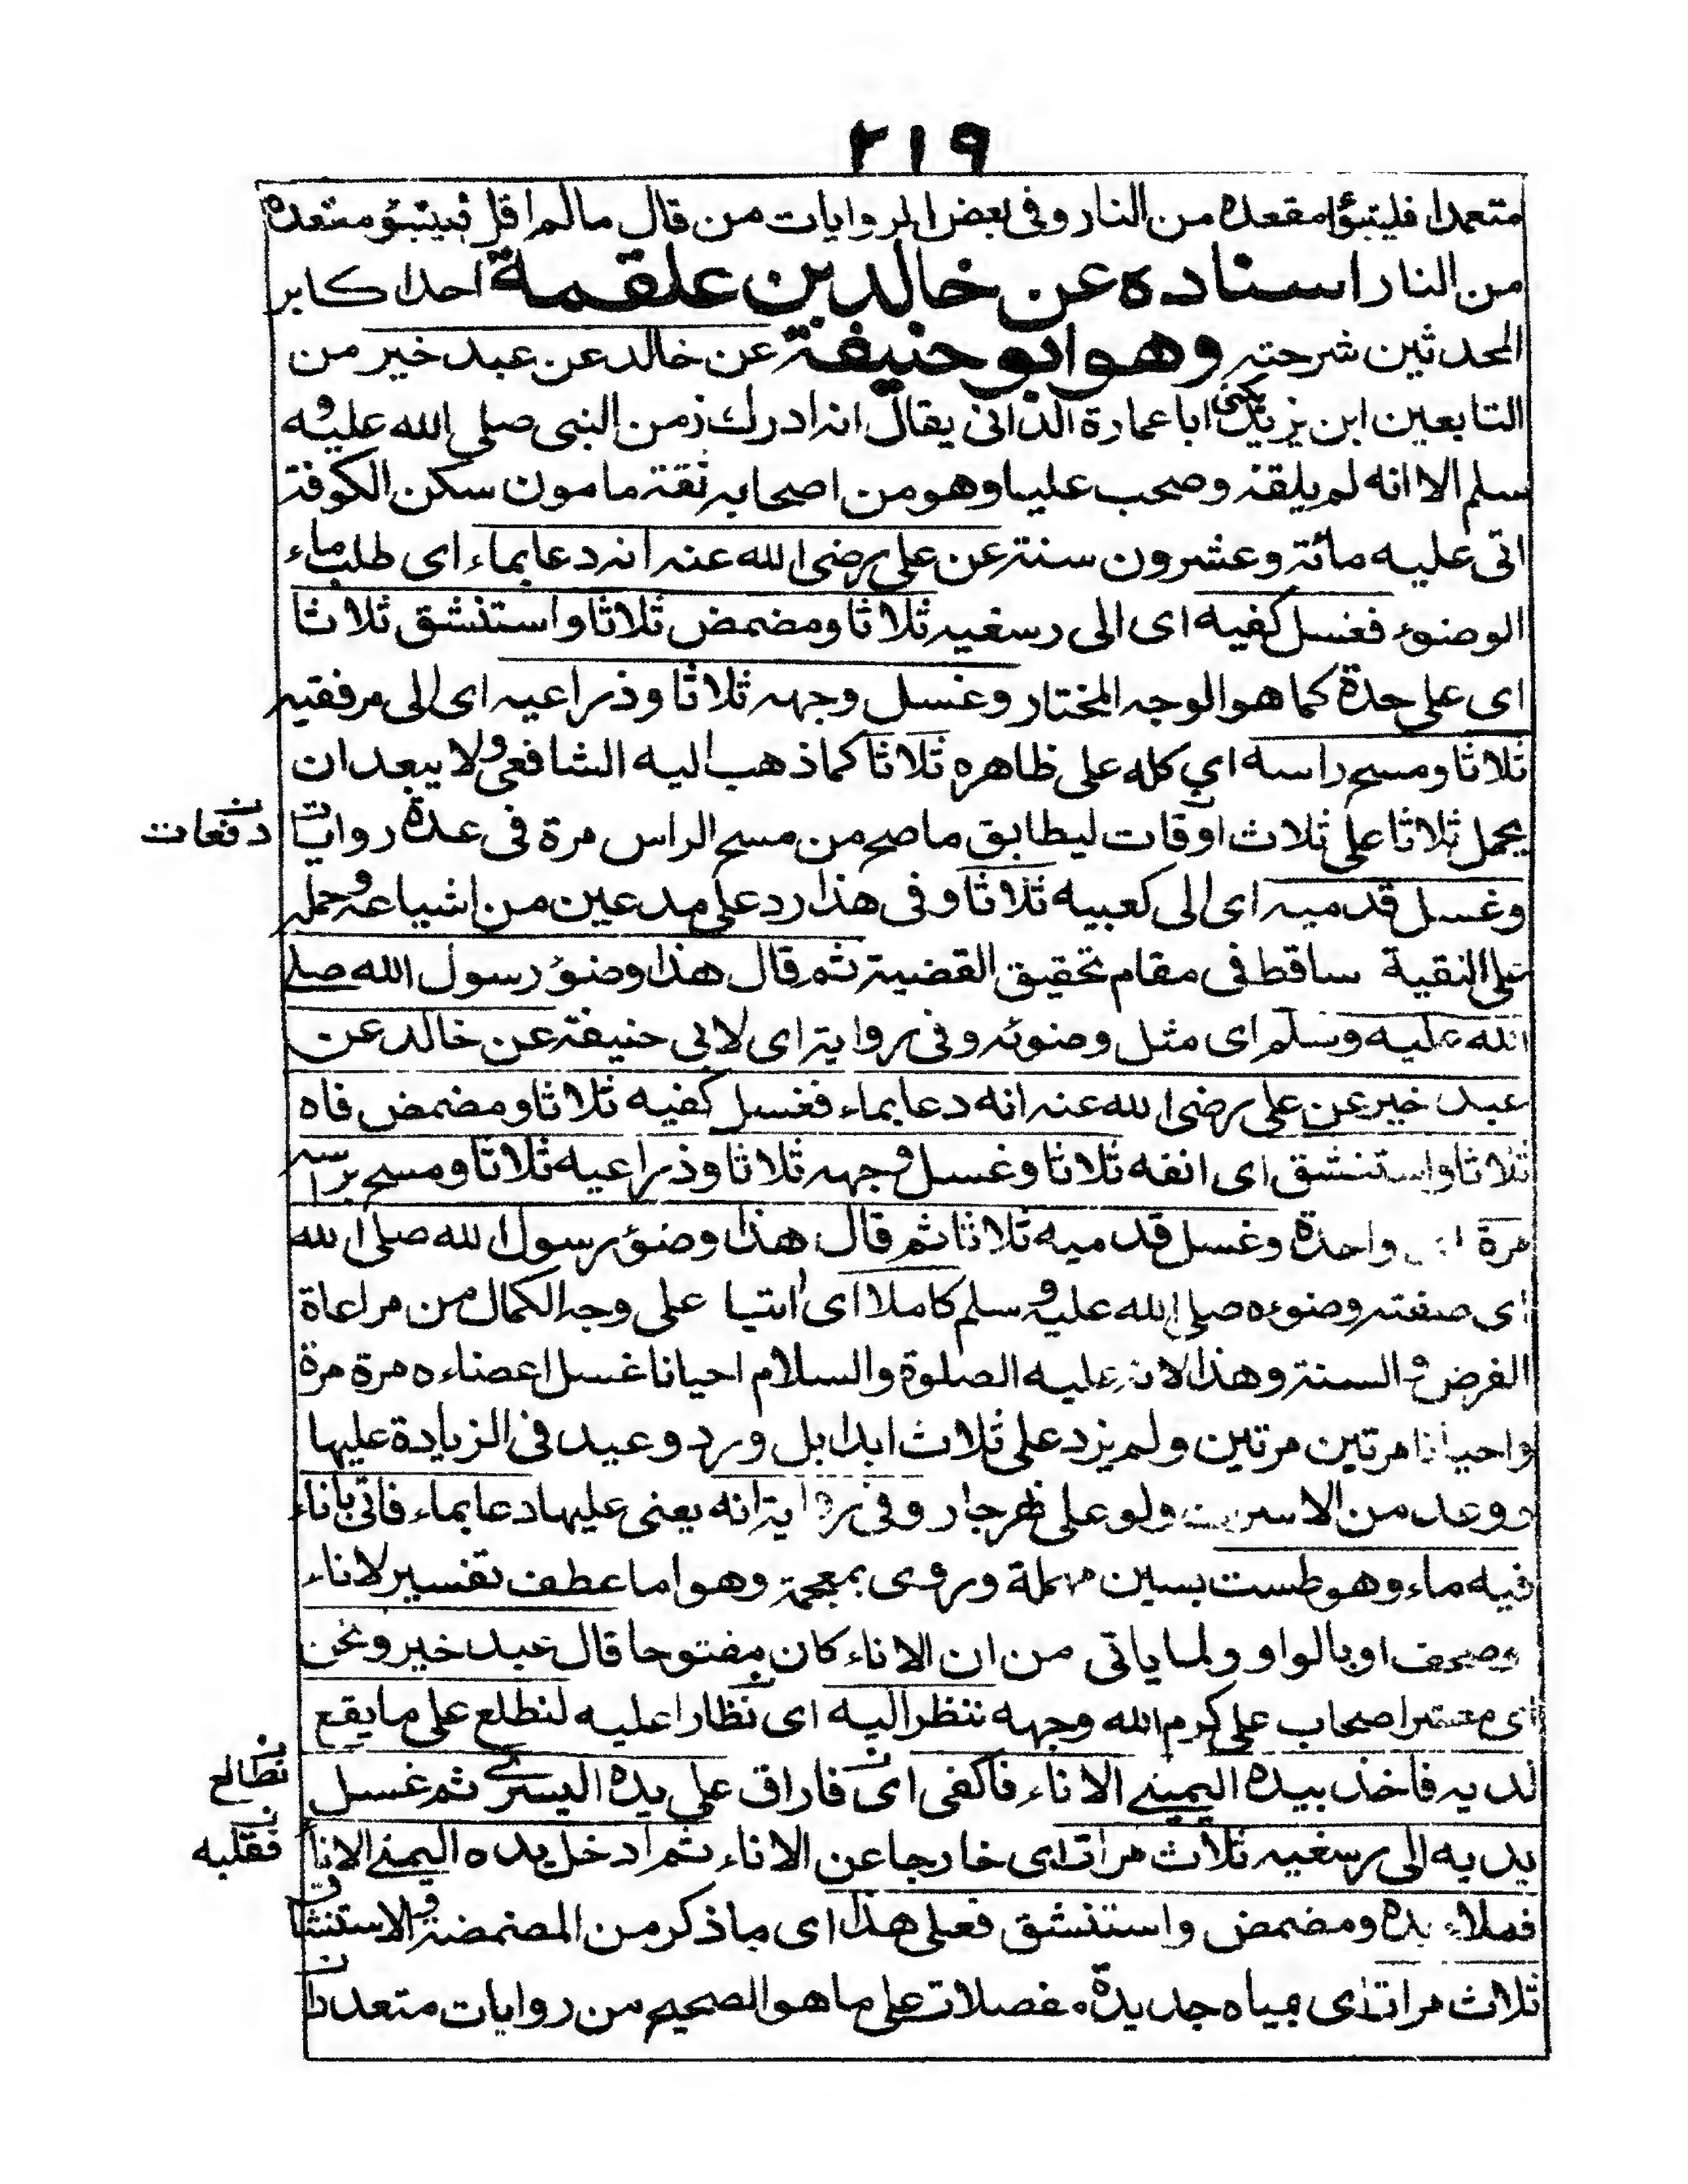 ٢١٩
متعمدا فليتبوأ مقعده من النار وفى بعض الروايات من قال مالم اقل فيتبوؤ مقعده
من النار اسناده عن خالد بن علقمة احد اكابر
المحدثين شرحته وهو ابو حنيفة عن خالد عن عبد خير من
التابعين ابن يزيد يكنى ابا عمارة الذانى يقال انه ادرك زمن النبى صلى الله عليه و
سلم الا انه لم يلقه وصحب عليا وهو من اصحابه ثقة مامون سكن الكوفة
اتى عليه مائة وعشرون سنة عن على رضى الله عنه انه دعا بماء اى طلب ماء
الوضوء فغسل كفيه اى الى رسغيه ثلاثا ومضمض ثلاثا واستنشق ثلاثا
اى على حدة كما هو الوجه المختار وغسل وجهه ثلاثا وذراعيه اى الى مرفقيه
ثلاثا ومسح راسه اي كله على ظاهره ثلاثا كما ذهب اليه الشافعى ولا يبعد ان
يحمل ثلاثا على ثلاث اوقات ليطابق ما صح من مسح الراس مرة فى عدة روايات
دفعات
وغسل قدميه اى الى كعبيه ثلاثا وفى هذا رد على مدعين من اشياعه وحمله
على التقية ساقط فى مقام تحقيق القضية ثم قال هذا وضؤ رسول الله صلى
الله عليه وسلم اى مثل وضوئه وفى رواية اى لابى حنيفة عن خالد عن
عبد خير عن على رضى الله عنه انه دعا بماء فغسل كفيه ثلاثا ومضمض فاه
ثلاثا واستنشق اى انفه ثلاثا وغسل وجهه ثلاثا وذراعيه ثلاثا ومسح براسه
مرة اى واحدة وغسل قدميه ثلاثا ثم قال هذا وضؤ رسول الله صلى الله
اى صفته وضوءه صلى الله عليه وسلم كاملا اى اتيا على وجه الكمال من مراعاة
الفرض و السنة وهذا لانه عليه الصلوة والسلام احيانا غسل اعضاءه مرة مرة
واحيانا مرتين مرتين ولم يزد على ثلاث ابدا بل ورد وعيد فى الزيادة عليها
ووعد من الا ولو على نهر جار وفى رواية انه يعنى عليها دعا بماء فاتى باناء
فيه ماء وهو طست بسين مهملة وروى بمعجمة وهو اما عطف تفسير لاناء
وصحف او بالواو ولما ياتى من ان الاناء كان مفتوحا قال عبد خير ونحن
اى معشر اصحاب على كرم الله وجهه ننظر اليه اى نظارا عليه لنطلع على ما يقع
لديه فاخذ بيده اليمنى الاناء فاكفى اى فاراق على يده اليسرى ثم غسل
نطالع
يديه الى رسغيه ثلاث مرات اى خارجا عن الاناء ثم ادخل يده اليمنى الانا
فقلبه
فملاء يده ومضمض واستنشق فعلى هذا اى ما ذكر من المضمضة والاستنشاق
ثلاث مرات اى بمياه جديدة مفصلات على ما هو الصحيح من روايات متعددات